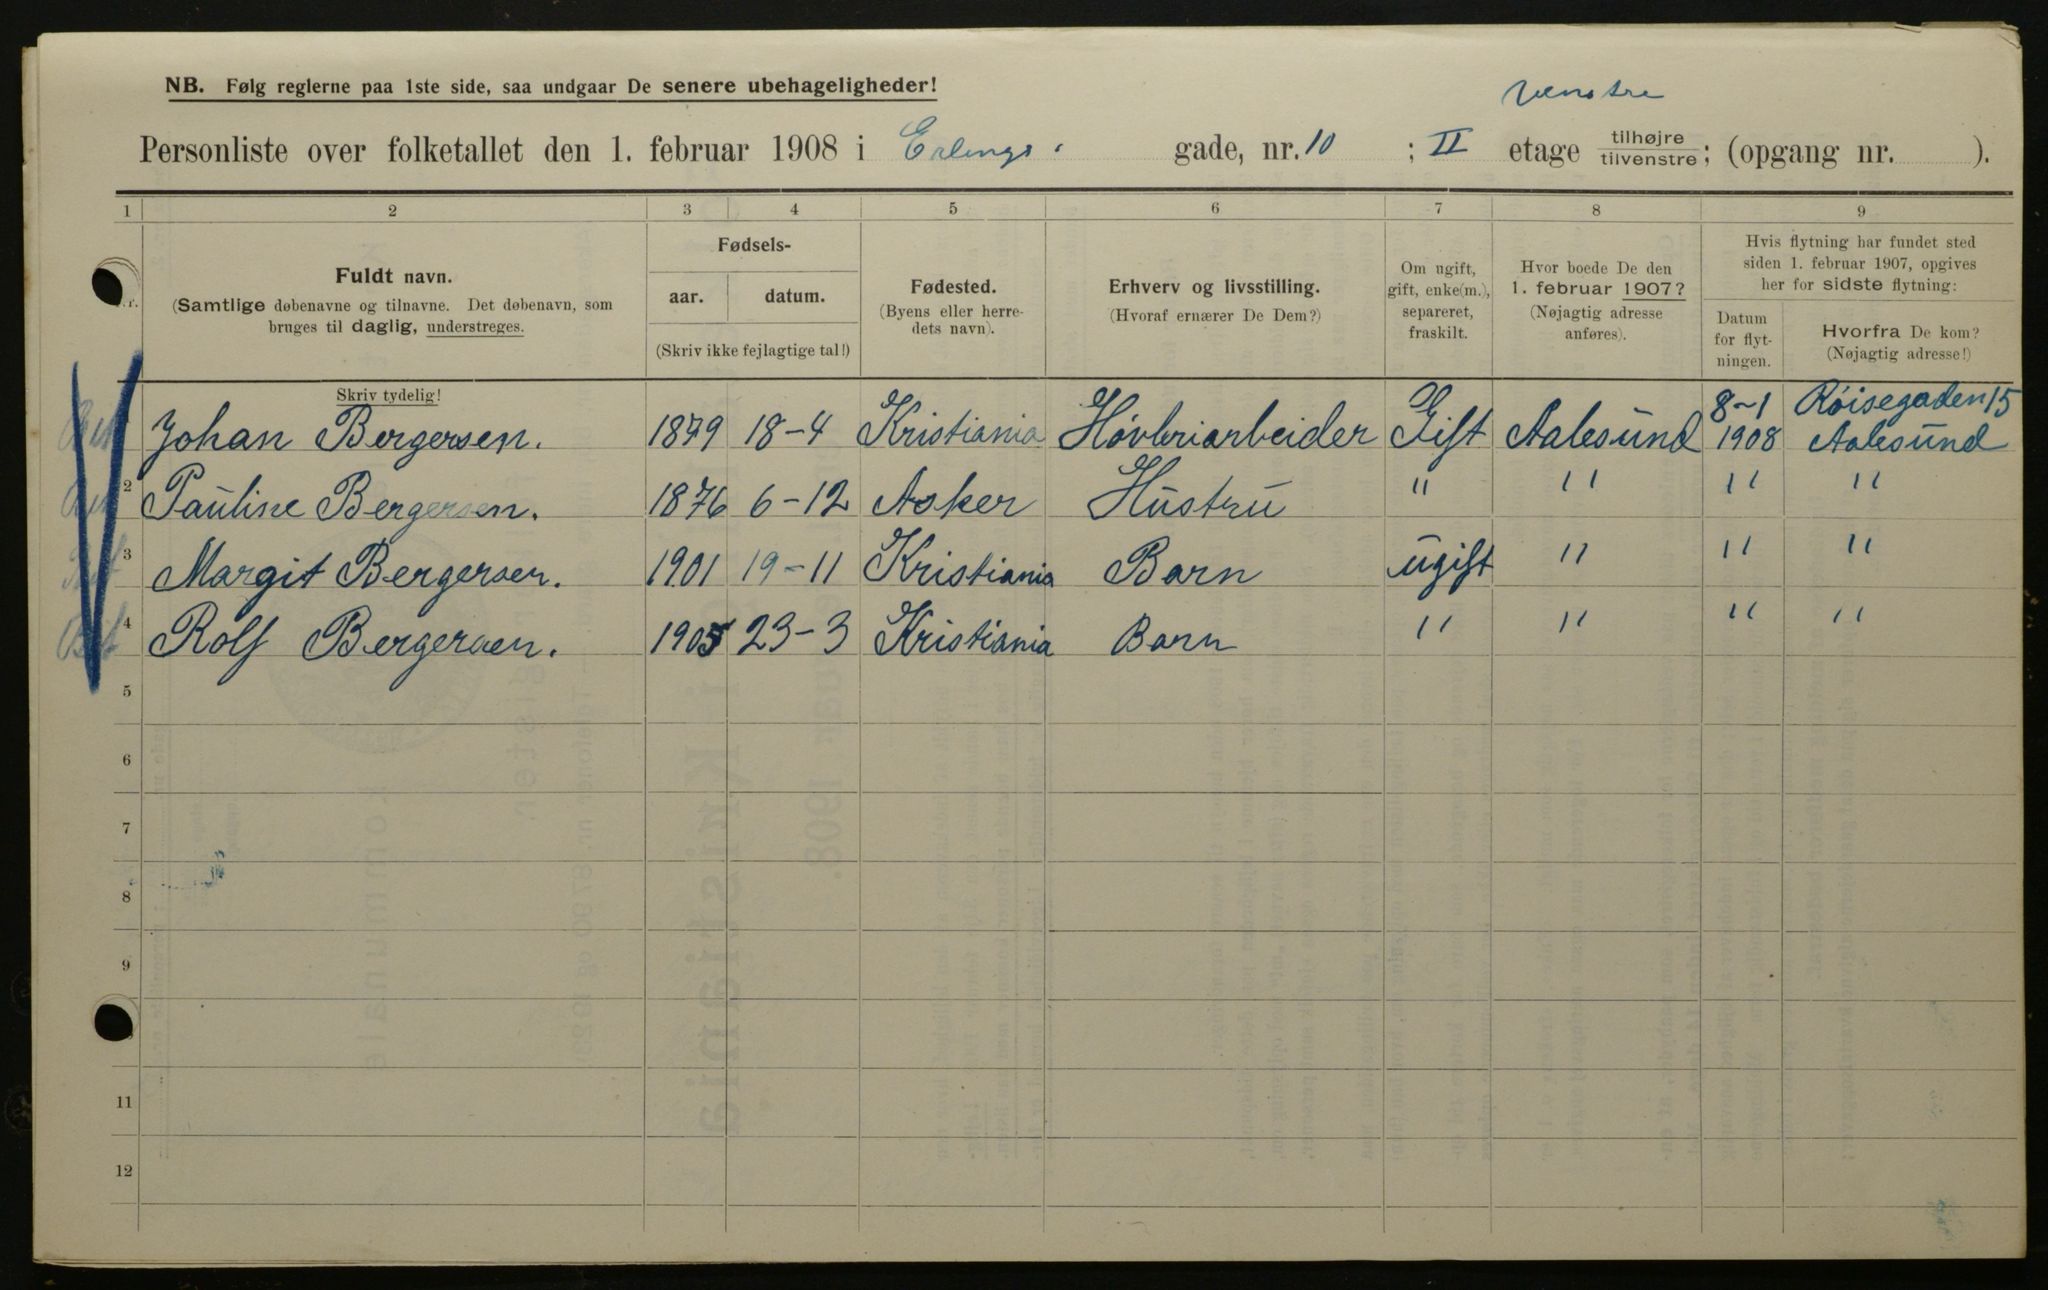 Venstre
NB. Følg reglerne paa 1ste side, saa undgaar De senere ubehageligheder!
Personliste over folketallet den 1. februar 1908 i Erlings gade, nr. 10 ; II etage tilhøjre tilvenstre; (opgang nr. ).
1 2 3 4 5 6 7 8 9
Nr.
Fuldt navn.
(Samtlige døbenavne og tilnavne. Det døbenavn, som
bruges til daglig, understreges.
Skriv tydelig!
Fødsels-
aar. datum.
(Skriv ikke fejlagtige tal!)
Fødested.
(Byens eller herre-
dets navn).
Erhverv og livsstilling.
(Hvoraf ernærer De Dem?)
Om ugift,
gift, enke(m.),
separeret,
fraskilt.
Hvor boede De den
1. februar 1907?
(Nøjagtig adresse
anføres).
Hvis flytning har fundet sted
siden 1. februar 1907, opgives
her for sidste flytning:
Datum
for flyt-
ningen.
Hvorfra De kom?
(Nøjagtig adresse!)
8-1 Röisegaden 15
Johan Bergersen. 1879 18-4 Kristiania Hövleriarbeider Gift Aalesund 1908 Aalesund
2 Pauline Bergersen. 1876 6-12 Asker Hustru " " " "
3 Margit Bergersen. 1901 19-11 Kristiania Barn ugift " " "
4 Rolf Bergersen. 1905 23-3 Kristiania Barn " " " "
5
6
7
8
9
11
12